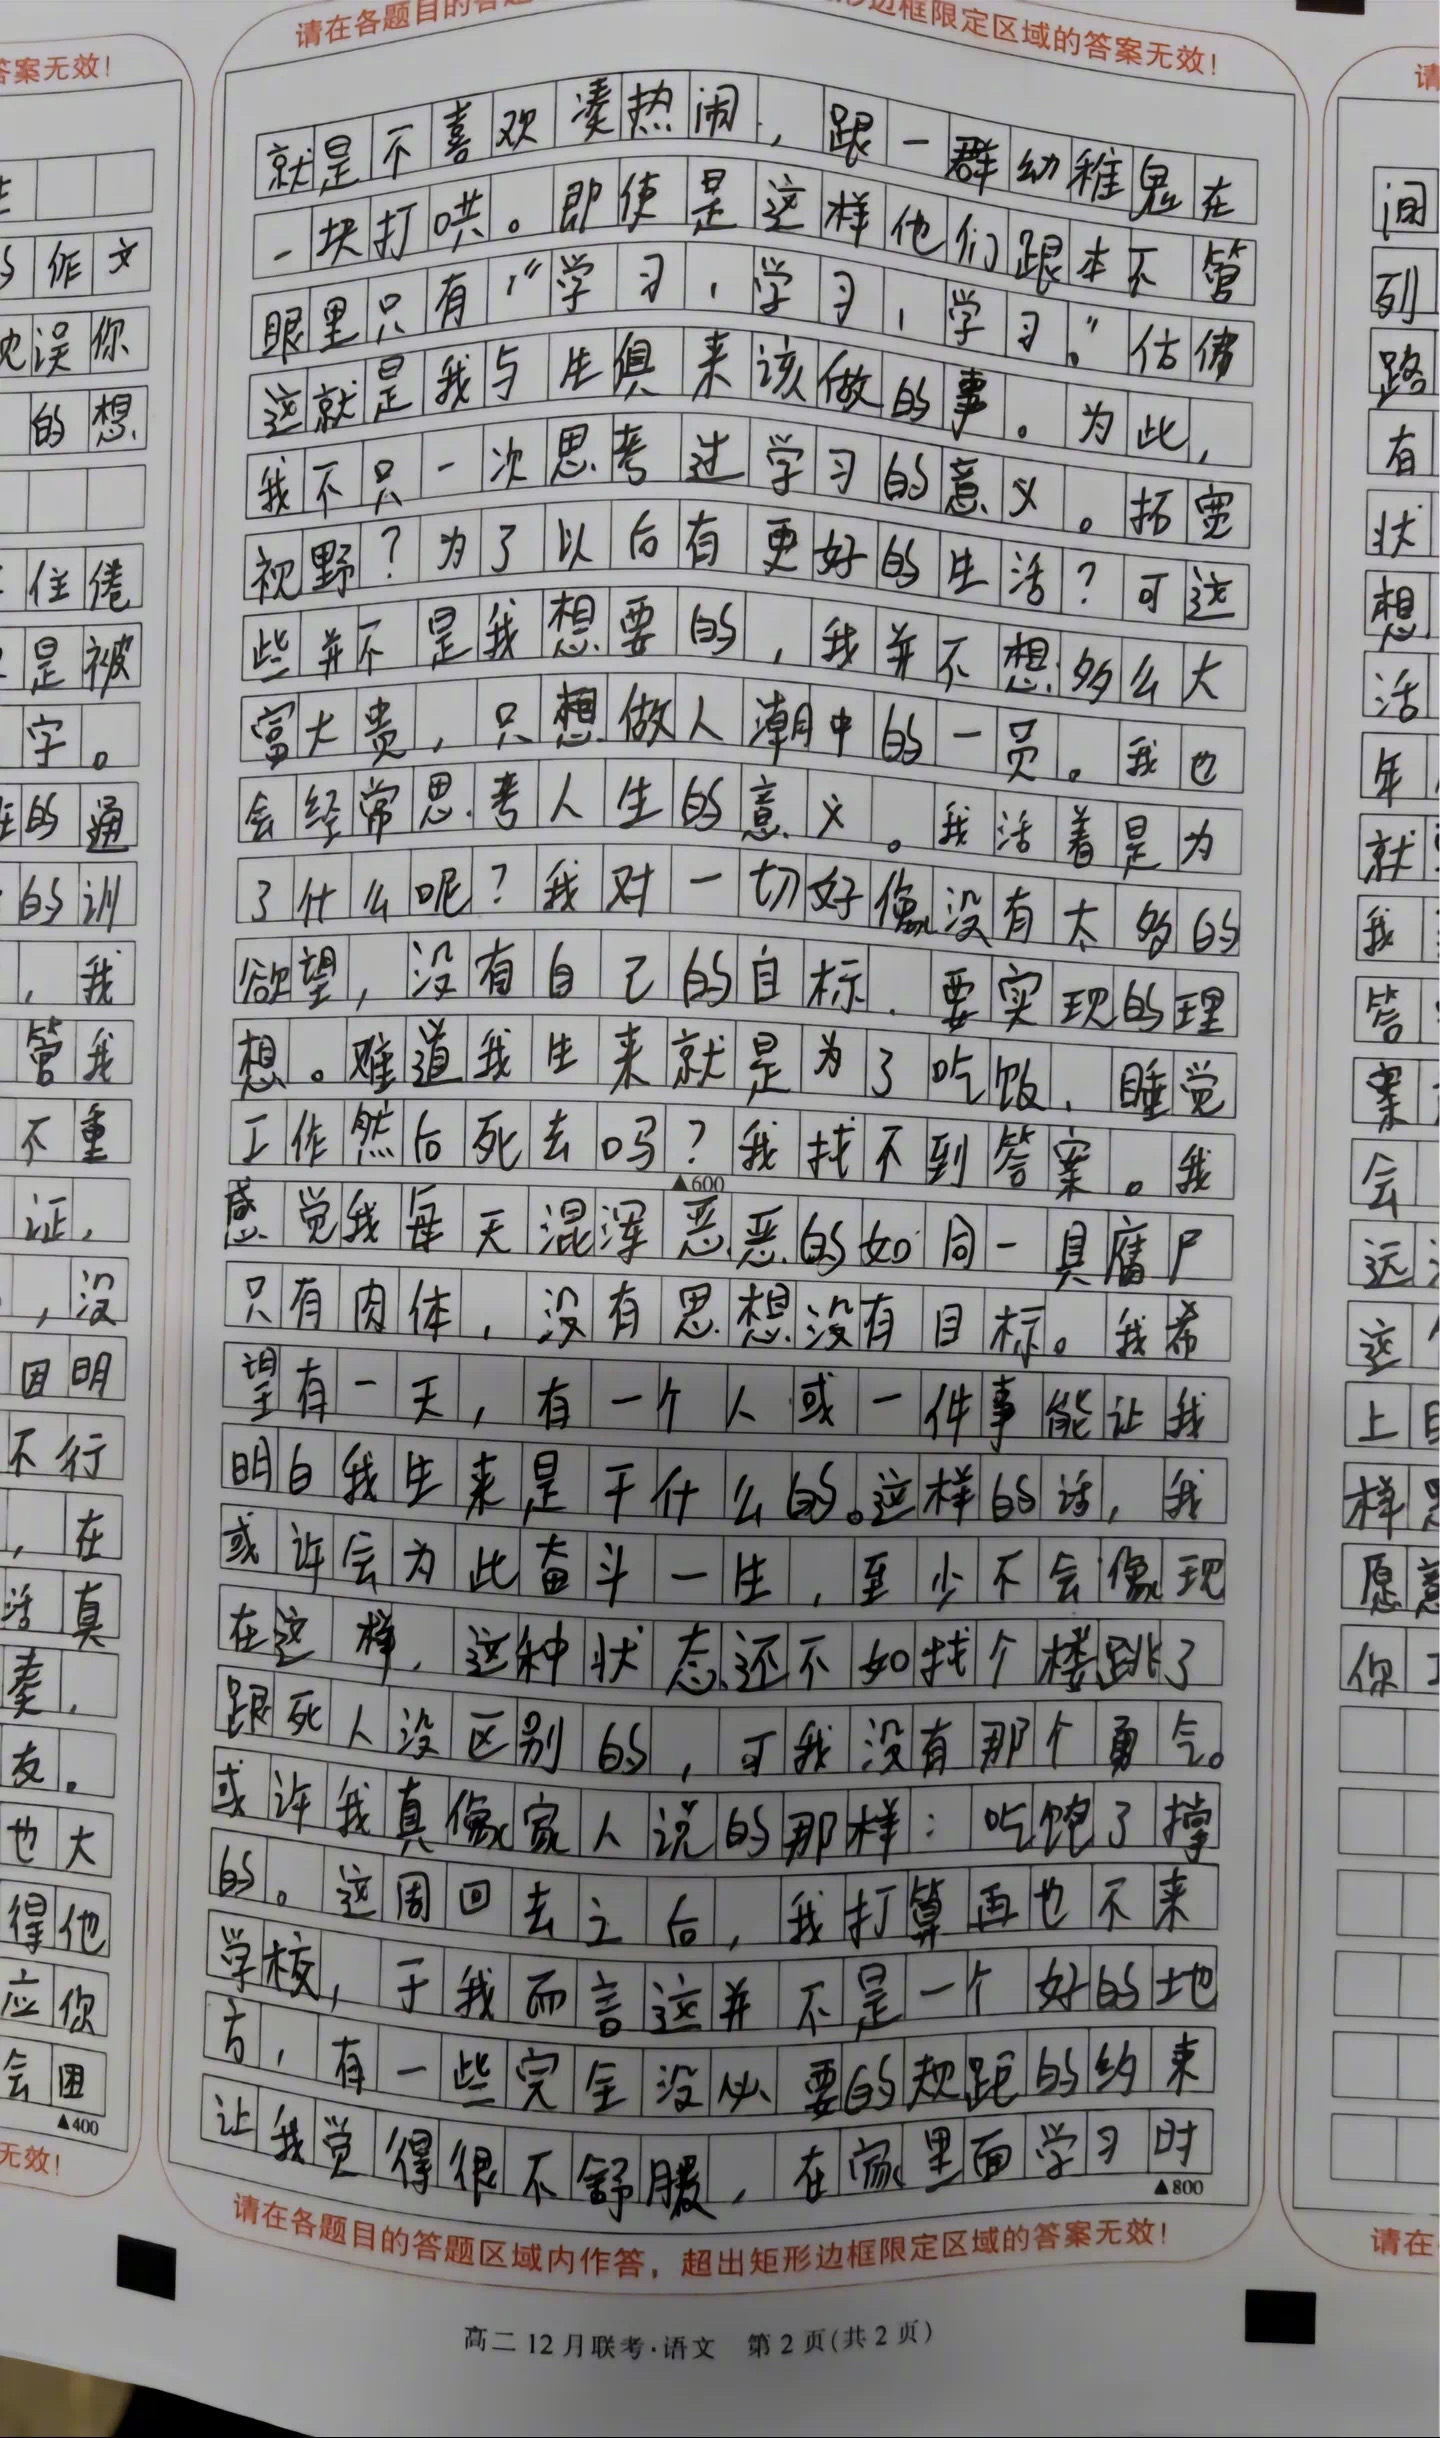 请在各题目的答题
矩形边框限定区域的答案无效！
就是不喜欢凑热闹，跟一群幼稚鬼在
一块打哄。即使是这样他们跟本不管
眼里只有“学习，学习，学习。”估佛
这就是我与生俱来该做的事。为此，
我不只一次思考过学习的意义。拓宽
视野？为了以后有更好的生活？可这
些并不是我想要的，我并不想多么大
富大贵，只想做人潮中的一员。我也
会经常思考人生的意义。我活着是为
了什么呢？我对一切好像没有太多的
欲望，没有自己的目标、要实现的理
想。难道我生来就是为了吃饭、睡觉
工作然后死去吗？我找不到答案。我
▲600
感觉我每天混浑恶恶的如同一具腐尸
只有肉体，没有思想没有目标。我希
望有一天，有一个人或一件事能让我
明白我生来是干什么的。这样的话，我
或许会为此奋斗一生，至少不会像现
在这样，这种状态还不如找个楼跳了
跟死人没区别的，可我没有那个勇气。
或许我真像家人说的那样：吃饱了撑
的。这周回去之后，我打算再也不来
学校，于我而言这并不是一个好的地
方，有一些完全没必要的规距的约束
让我觉得很不舒服，在家里面学习时
▲800
请在各题目的答题区域内作答，超出矩形边框限定区域的答案无效！
高二12月联考·语文 第2页(共2页)
答案无效！
作文
误你
的想
住倦
是被
字。
的通
的训
，我
管我
不重
证，
，没
因明
不行
，在
活真
奏，
友。
也大
得他
应你
会困
▲400
无效！
请
间
列
路
有
状
想
活
年
就
我
答
案
会
远
这
上
样
愿意
你
请在